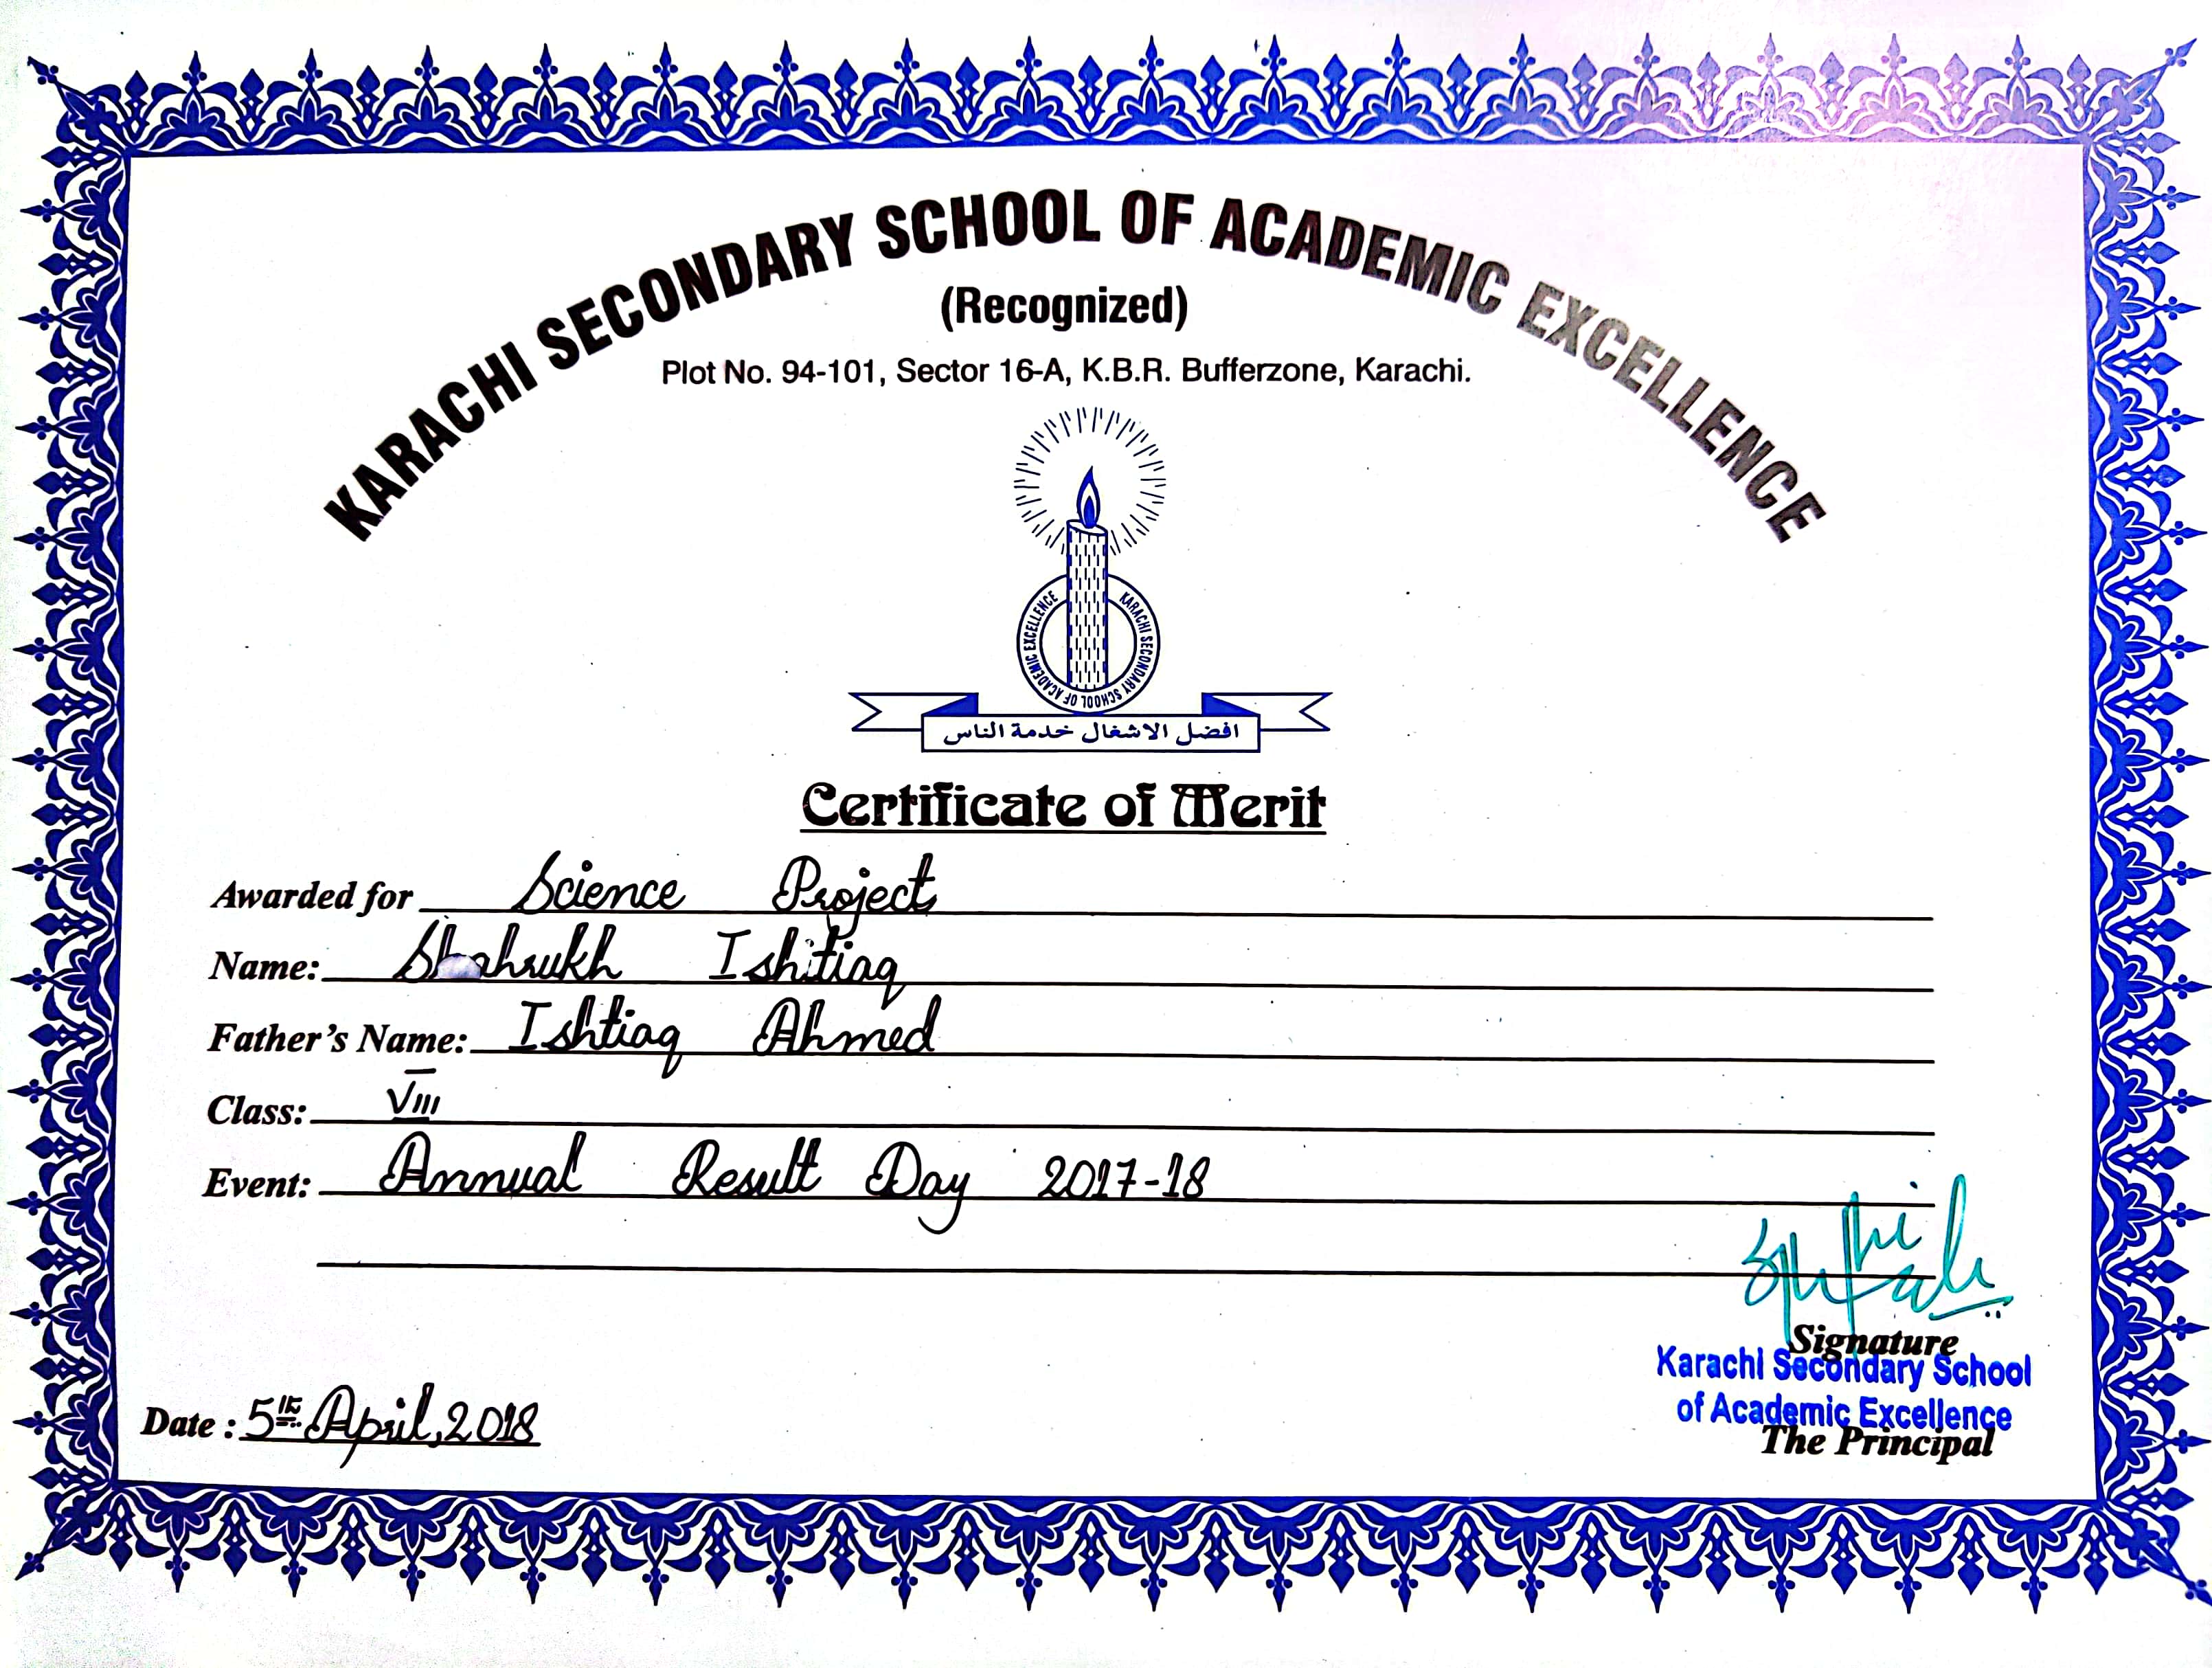 KARACHI SECONDARY SCHOOL OF ACADEMIC EXCELLENCE
(Recognized)
Plot No. 94-101, Sector 16-A, K.B.R. Bufferzone, Karachi.
KARACHI SECONDARY SCHOOL OF ACADEMIC EXCELLENCE
افضل الاشغال خدمة الناس
Certificate of Merit
Awarded for Science Project
Name: Shahrukh Ishitiaq
Father's Name: Ishtiaq Ahmed
Class: VIII
Event: Annual Result Day 2017-18
Signature
Karachi Secondary School
of Academic Excellence
The Principal
Date : 5th April, 2018